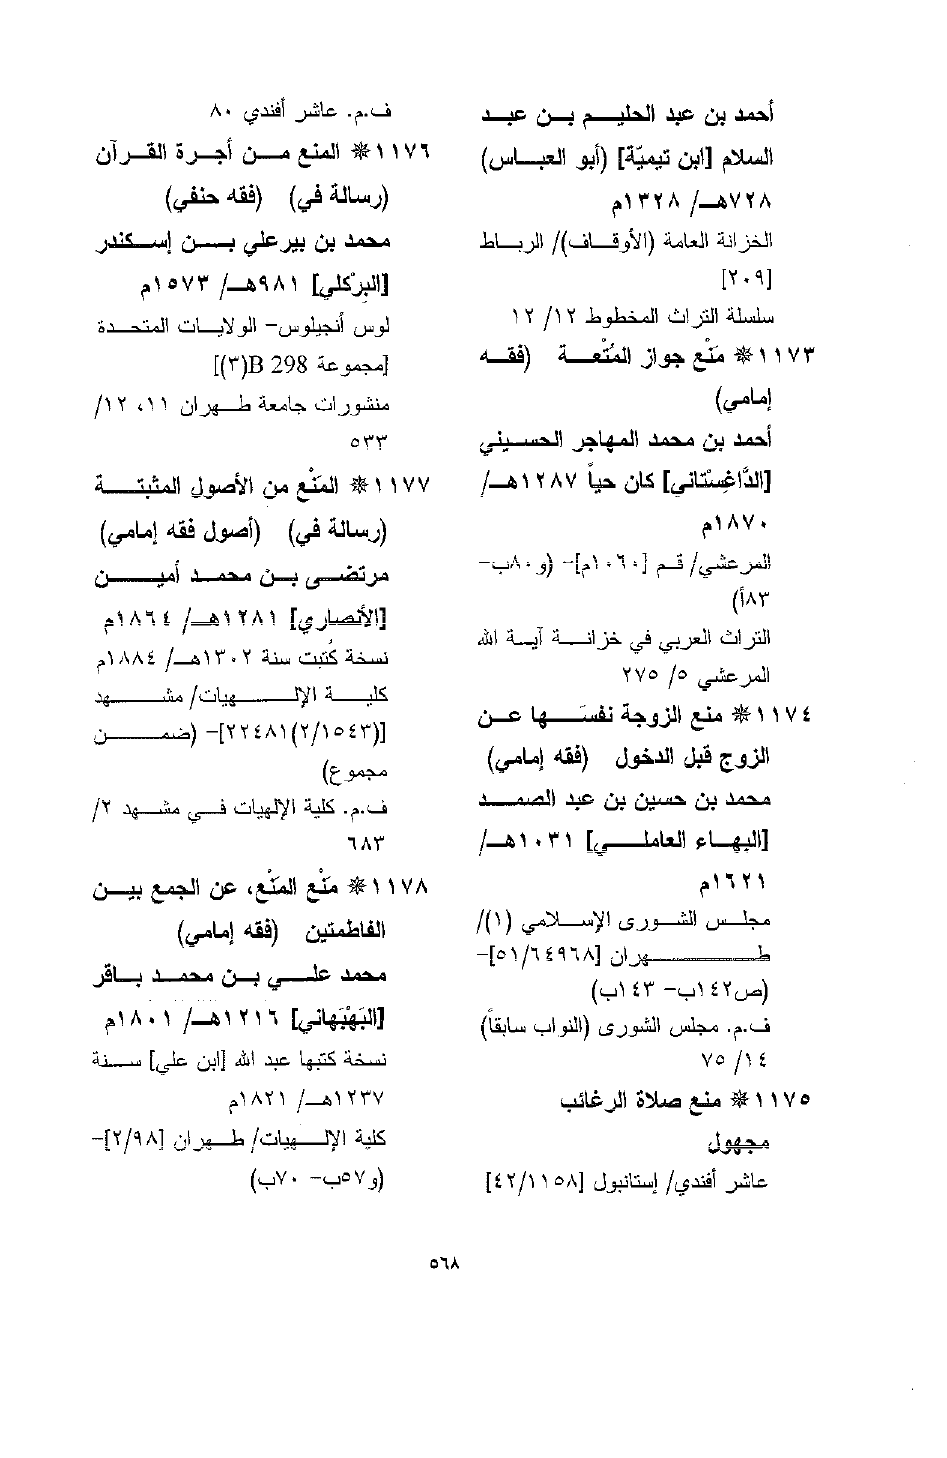 أحمد بن عبد الحليم بن عبد
السلام [ابن تيميّة] (أبو العباس)
٧٢٨هـ/ ١٣٢٨م
الخزانة العامة (الأوقاف)/ الرباط
[٢٠٩]
سلسلة التراث المخطوط ١٢/ ١٢
١١٧٣ * مَنْع جواز المُتْعة (فقه
إمامي)
أحمد بن محمد المهاجر الحسيني
[الدَّاغِسْتاني] كان حياً ١٢٨٧هـ/
١٨٧٠م
المرعشي/ قم [١٠٦٠م]- (و٨٠ب-
٨٣أ)
التراث العربي في خزانة آية الله
المرعشي ٥/ ٢٧٥
١١٧٤ * منع الزوجة نفسَها عن
الزوج قبل الدخول (فقه إمامي)
محمد بن حسين بن عبد الصمد
[البهاء العاملي] ١٠٣١هـ/
١٦٢١م
مجلس الشورى الإسلامي (١)/
طهران [٥١/٦٤٩٦٨]-
(ص١٤٢ب- ١٤٣ب)
ف.م. مجلس الشورى (النواب سابقاً)
١٤/ ٧٥
١١٧٥ * منع صلاة الرغائب
مجهول
عاشر أفندي/ إستانبول [٤٢/١١٥٨]
ف.م. عاشر أفندي ٨٠
١١٧٦ * المنع من أجرة القرآن
(رسالة في) (فقه حنفي)
محمد بن بيرعلي بن إسكندر
[البِرْكلي] ٩٨١هـ/ ١٥٧٣م
لوس أنجيلوس- الولايات المتحدة
[مجموعة B 298(٣)]
منشورات جامعة طهران ١١، ١٢/
٥٣٣
١١٧٧ * المَنْع من الأصول المثبتة
(رسالة في) (أصول فقه إمامي)
مرتضى بن محمد أمين
[الأنصاري] ١٢٨١هـ/ ١٨٦٤م
نسخة كُتبت سنة ١٣٠٢هـ/ ١٨٨٤م
كلية الإلهيات/ مشهد
[(٢/١٥٤٣)٢٢٤٨١]- (ضمن
مجموع)
ف.م. كلية الإلهيات في مشهد ٢/
٦٨٣
١١٧٨ * مَنْع المَنْع، عن الجمع بين
الفاطمتين (فقه إمامي)
محمد علي بن محمد باقر
[البَهْبَهاني] ١٢١٦هـ/ ١٨٠١م
نسخة كتبها عبد الله [ابن علي] سنة
١٢٣٧هـ/ ١٨٢١م
كلية الإلهيات/ طهران [٢/٩٨]-
(و٥٧ب- ٧٠ب)
٥٦٨